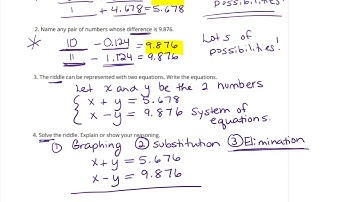 1 + 4.678 = 5.678 possibilities!
2. Name any pair of numbers whose difference is 9.876.
* 10 - 0.124 = 9.876 Lots of
11 - 1.124 = 9.876 possibilities!
3. The riddle can be represented with two equations. Write the equations.
Let x and y be the 2 numbers
{ x + y = 5.678
x - y = 9.876 System of
equations.
4. Solve the riddle. Explain or show your reasoning.
① Graphing ② substitution ③ Elimination
x + y = 5.676
x - y = 9.876